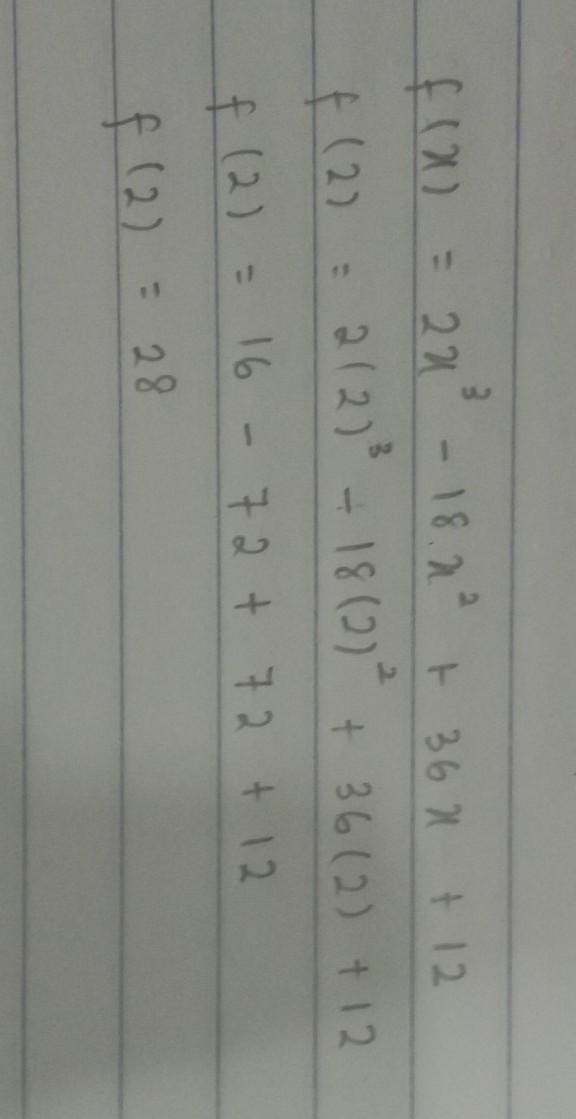 f(x) = 2x³ - 18.x² + 36x + 12
f(2) = 2(2)³ - 18(2)² + 36(2) + 12
f(2) = 16 - 72 + 72 + 12
f(2) = 28